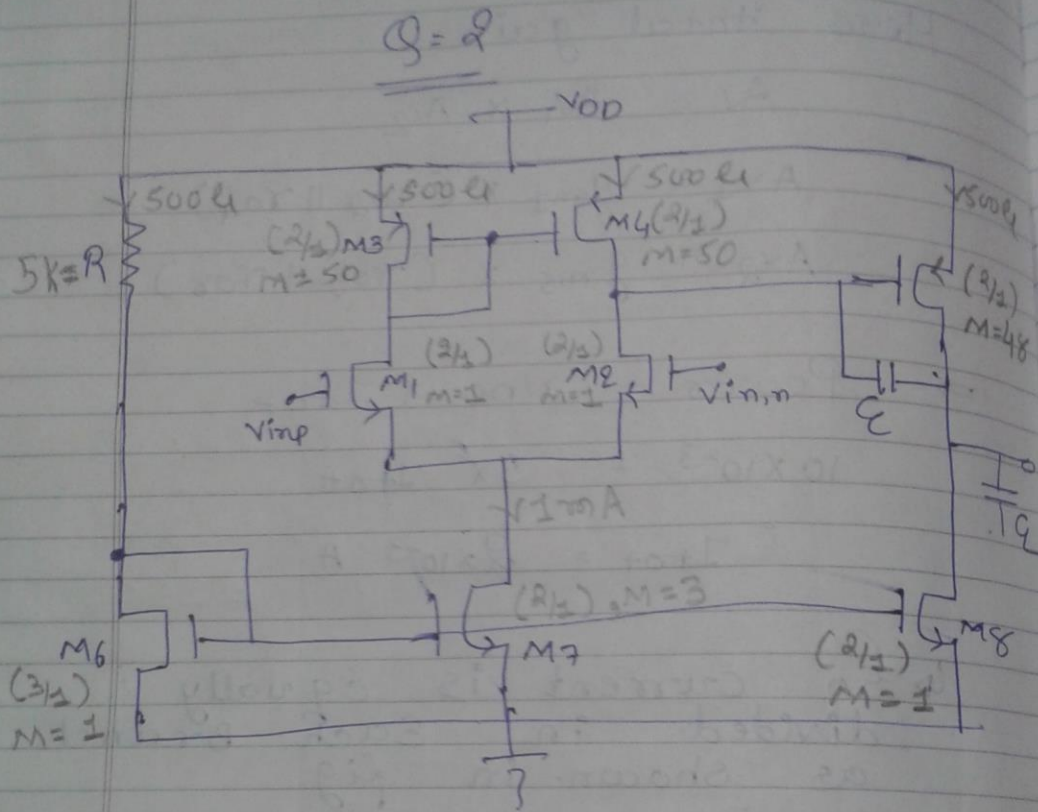 Q=2
VDD
500u
500u
500u
500u
5K=R
(2/1) M3
m=50
M4 (2/1)
m=50
(2/1)
M=48
M1
(2/1)
m=1
(2/1)
M2
m=1
Vinp
Vin,n
1mA
M6
(3/1)
M=1
(2/1), M=3
M7
M8
(2/1)
M=1